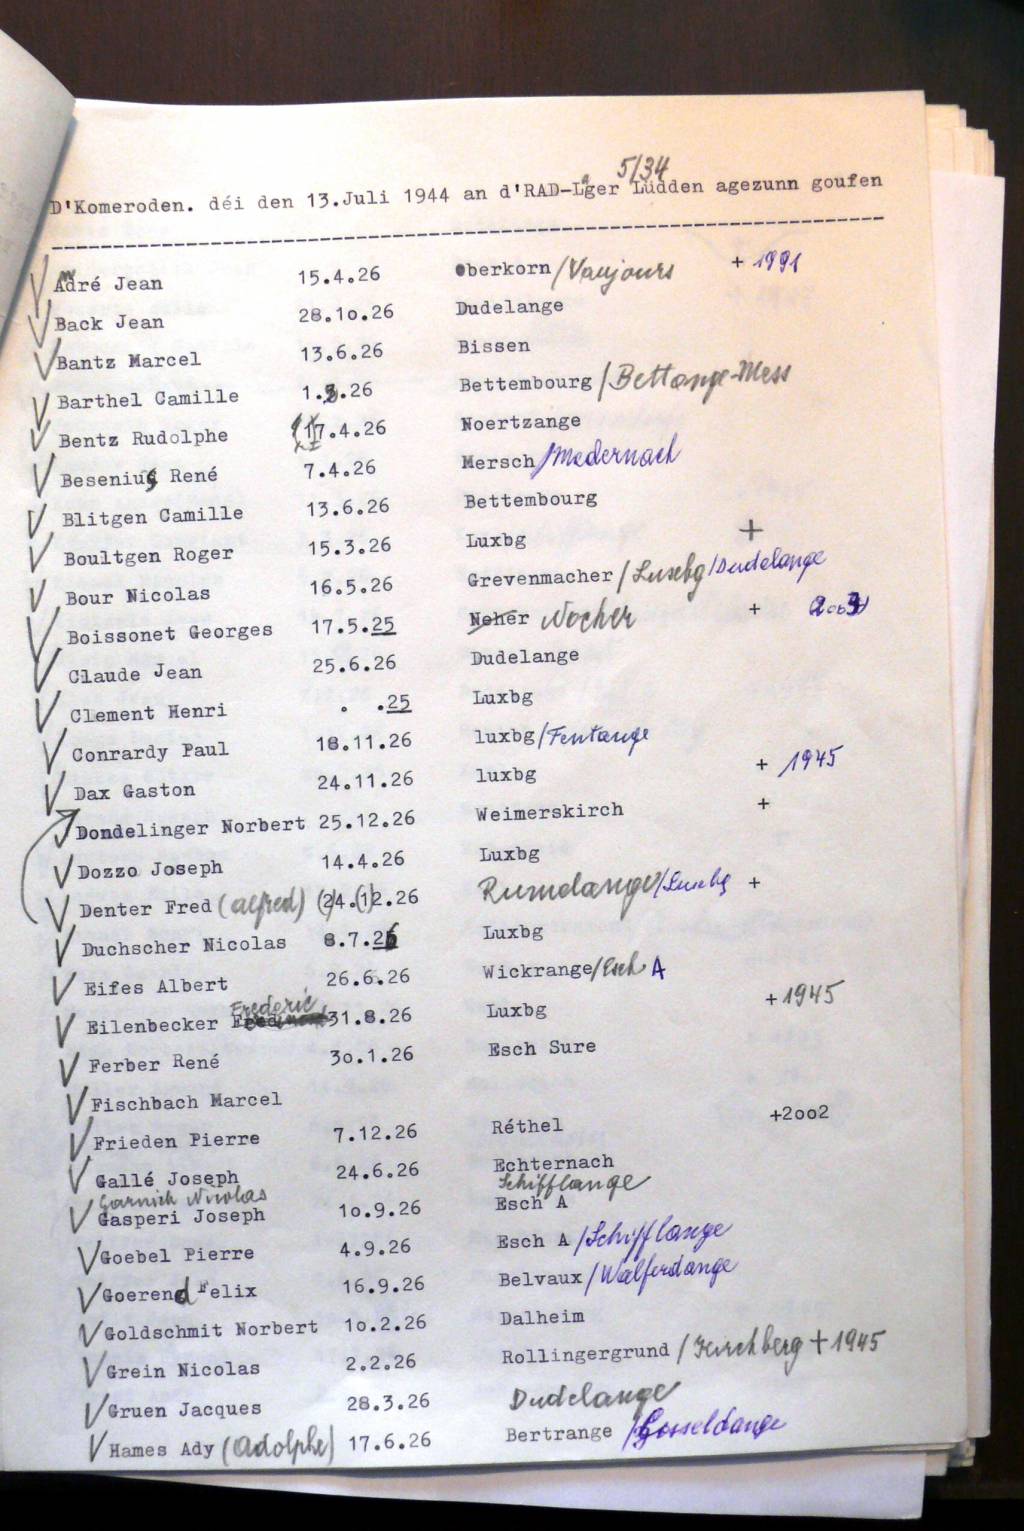 5/34
D'Komeroden. déi den 13.Juli 1944 an d'RAD-Lager Lüdden agezunn goufen
André Jean 15.4.26 Oberkorn /Vaujours + 1991
Back Jean 28.1o.26 Dudelange
Bantz Marcel 13.6.26 Bissen
Barthel Camille 1.3.26 Bettembourg /Bettange-Mess
Bentz Rudolphe 17.4.26 Noertzange
Besenius René 7.4.26 Mersch /Medernach
Blitgen Camille 13.6.26 Bettembourg
Boultgen Roger 15.3.26 Luxbg +
Bour Nicolas 16.5.26 Grevenmacher /Luxbg /Dudelange
Boissonet Georges 17.5.25 Neher Nocher + 2003
Claude Jean 25.6.26 Dudelange
Clement Henri . .25 Luxbg
Conrardy Paul 18.11.26 luxbg/Fentange
Dax Gaston 24.11.26 luxbg + 1945
Dondelinger Norbert 25.12.26 Weimerskirch +
Dozzo Joseph 14.4.26 Luxbg
Denter Fred (alfred) (2)4.(1)2.26 Rumelange/Luxbg +
Duchscher Nicolas 8.7.26 Luxbg
Eifes Albert 26.6.26 Wickrange/Esch A
Eilenbecker Frederic 31.8.26 Luxbg +1945
Ferber René 3o.1.26 Esch Sure
Fischbach Marcel
Frieden Pierre 7.12.26 Réthel +2oo2
Gallé Joseph 24.6.26 Echternach
Garnich Nicolas Schifflange
Gasperi Joseph 1o.9.26 Esch A
Goebel Pierre 4.9.26 Esch A /Schifflange
Goerend Felix 16.9.26 Belvaux /Walferdange
Goldschmit Norbert 1o.2.26 Dalheim
Grein Nicolas 2.2.26 Rollingergrund /Kirchberg +1945
Gruen Jacques 28.3.26 Dudelange
Hames Ady (Adolphe) 17.6.26 Bertrange /Gosseldange